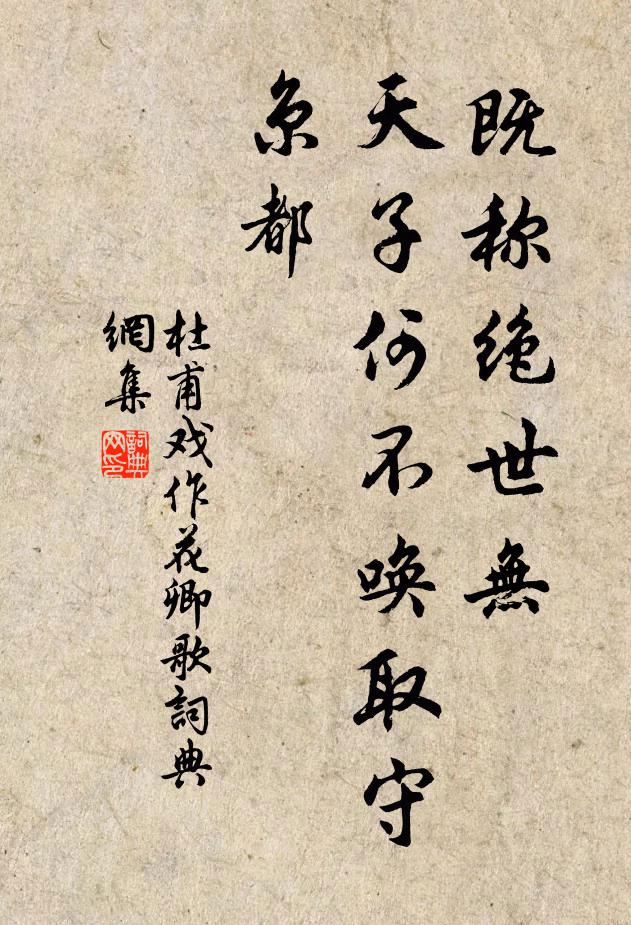 既称绝世無
天子何不唤取守
京都
杜甫戏作花卿歌詞典
網集
詞典
网印